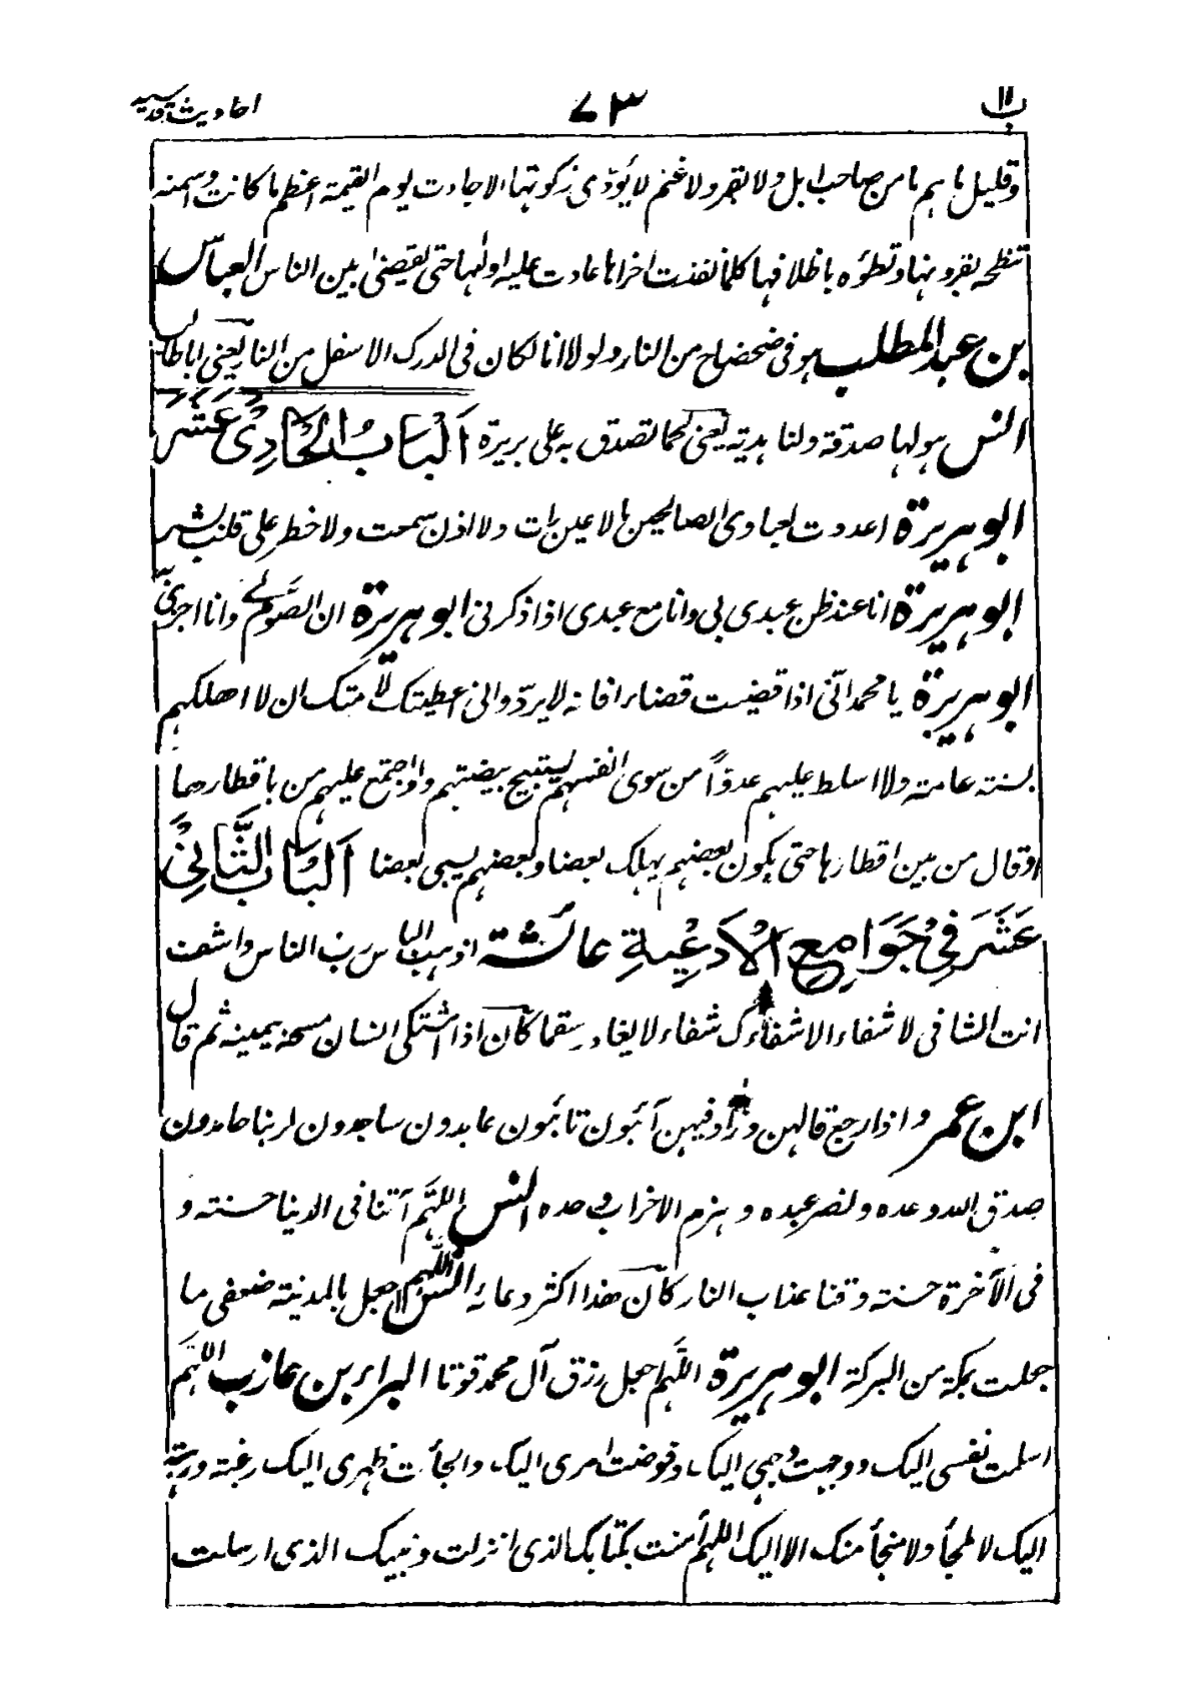 باب ۱۱ ۷۳ احادیث قدسیہ
وقليل ما هم ما من صاحب ابل ولا بقر ولا غنم لا يؤدى زكوتها الا جاءت يوم القيمة اعظم ما كانت واسمنه
تنطحه بقرونها وتطؤه باظلافها كلما نفذت اخراها عادت عليه اولٰها حتى يقضىٰ بين الناس العباس
بن عبد المطلب هو فى ضحضاح من النار ولولا انا لكان فى الدرك الاسفل من النار يعنى ابا طالب
انس هو لها صدقة ولنا هدية يعنى لحما تصدق به على بريرة اَلْبَابُ الْحَادِىْ عَشَرَ
ابو هريرة اعددت لعبادى الصالحين ما لا عين رات ولا اذن سمعت ولا خطر على قلب بشر
ابو هريرة انا عند ظن عبدى بى وانا مع عبدى اذا ذكرنى ابو هريرة ان الصَّوم لى وانا اجزى به
ابو هريرة يا محمد انّى اذا قضيت قضاء فانه لا يردّ وانى اعطيتك لأمتك ان لا اهلكهم
بسنة عامة ولا اسلط عليهم عدوّاً من سوى انفسهم يستبيح بيضتهم ولو اجتمع عليهم من باقطارها
او قال من بين اقطارها حتى يكون بعضهم يهلك بعضا وبعضهم يسبى بعضا اَلْبَابُ الثَّانِىْ
عَشَرَ فِىْ جَوَامِعِ الْاَدْعِيَةِ عائشة اذهب الباس رب الناس واشف
انت الشافى لا شفاء الا شفاءك شفاء لا يغادر سقما كان اذا اشتكى انسان مسحه بيمينه ثم قال
ابن عمر واذا رجع قالهن وزاد فيهن آئبون تائبون عابدون ساجدون لربنا حامدون
صدق الله وعده ونصر عبده وهزم الاحزاب وحده انس اللهم آتنا فى الدنيا حسنة و
فى الآخرة حسنة وقنا عذاب النار كان هذا اكثر دعائه انس اللهم اجعل بالمدينة ضعفى ما
جعلت بمكة من البركة ابو هريرة اللهم اجعل رزق آل محمد قوتا البراء بن عازب اللهم
اسلمت نفسى اليك ووجهت وجهى اليك وفوضت امرى اليك والجأت ظهرى اليك رغبة ورهبة
اليك لا ملجأ ولا منجأ منك الا اليك اللهم آمنت بكتابك الذى انزلت ونبيك الذى ارسلت